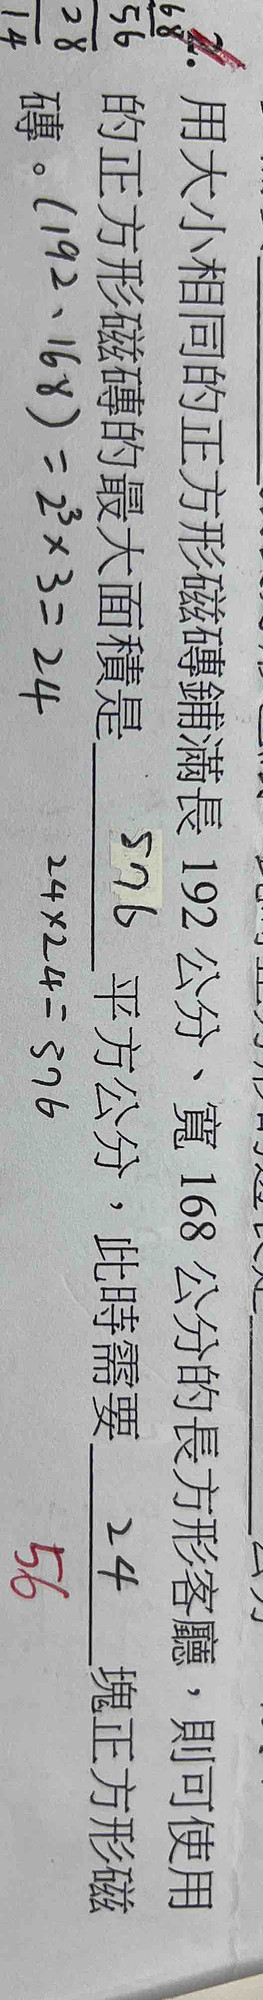 2. 用大小相同的正方形磁磚鋪滿長 192 公分、寬 168 公分的長方形客廳，則可使用
的正方形磁磚的最大面積是 576 平方公分，此時需要 24 塊正方形磁
56
磚。(192、168) = 2³×3=24 24×24=576
68
56
28
14